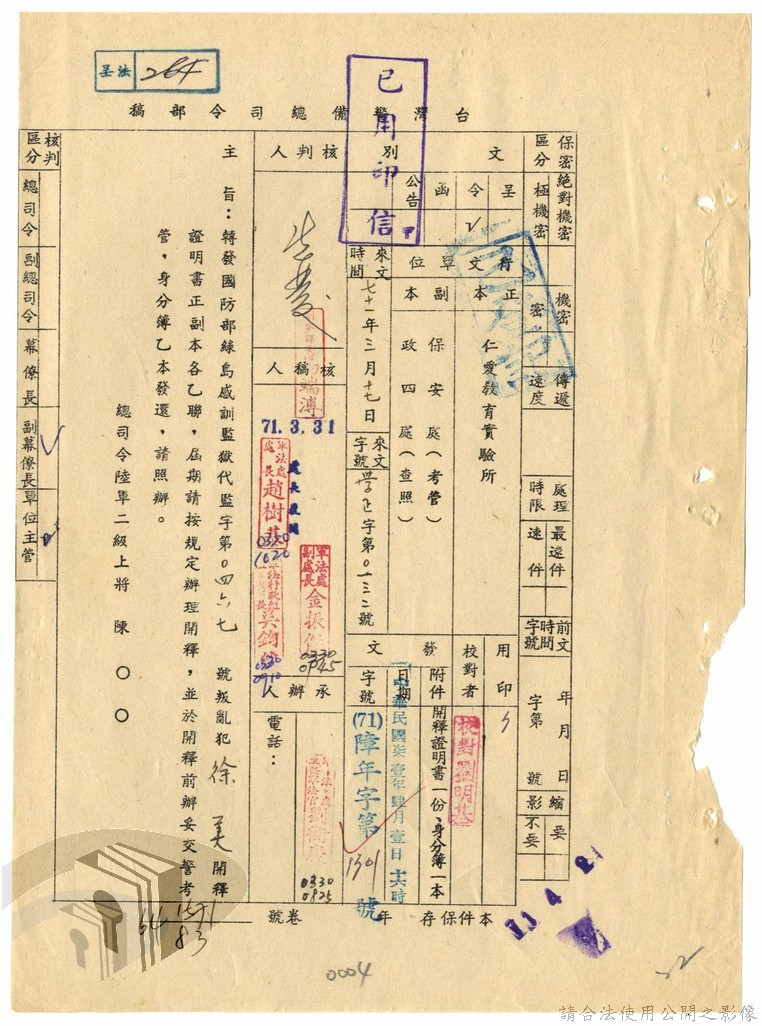 呈法 264
已用印信
台灣警備總司令部稿
保密區分
絕對機密
極機密
機密
密
傳遞速度
處理時限
最速件
速件
前文時間字號
年 月 日
字第 號
縮影
要
不要
文別
呈
令 ✓
函
公告
行文單位
正本
仁愛教育實驗所
副本
保安處(考管)
政四處(查照)
來文時間
七十一年三月十七日
來文字號
字第0一三二號
用印
校對者
校對劉明基
發文
附件
開釋證明書一份、身分簿一本
日期
中華民國柒壹年肆月壹日 十六時
字號
(71)障年字第1301號
核判人
核稿人
71.3.31
軍法處處長趙樹
0330
1020
軍法處副處長金振
0330
0945
0330
0910
承辦人
0330
0925
電話:
主旨:轉發國防部綠島感訓監獄代監字第0四六七 號叛亂犯徐 美開釋
證明書正副本各乙聯,屆期請按規定辦理開釋,並於開釋前辦妥交警考
管,身分簿乙本發還,請照辦。
總司令陸軍二級上將陳○○
核判區分
總司令
副總司令
幕僚長
副幕僚長 ✓
單位主管
本件保存 年
卷號
0004
請合法使用公開之影像